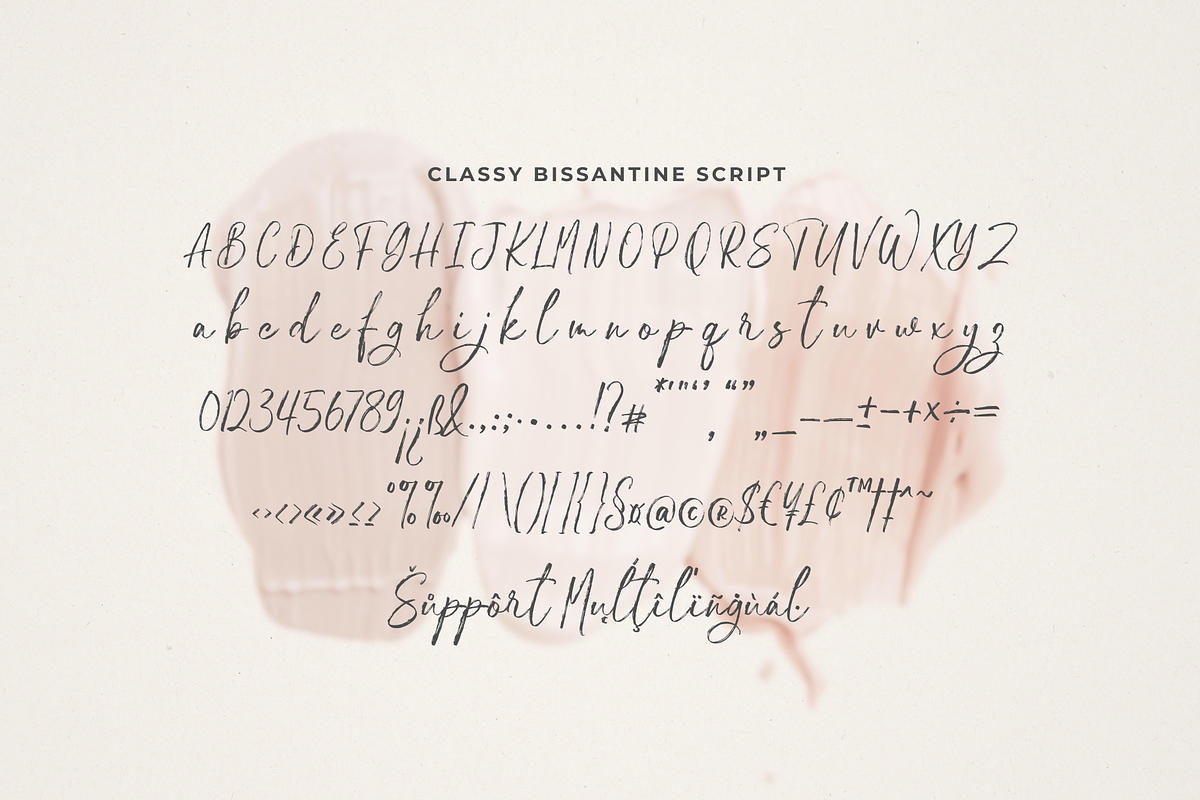 CLASSY BISSANTINE SCRIPT
A B C D E F G H I J K L M N O P Q R S T U V W X Y Z
a b c d e f g h i j k l m n o p q r s t u v w x y z
0123456789¡¿ß&.,:;·•…!?#*"'‘’“”‚„_–—±−+×÷=
‹›<>«»≤≥°%‰/|\()[]{}§¤@©®$€¥£¢™†‡^~
Šůppôrt Mụlťţîlïñġùáŀ